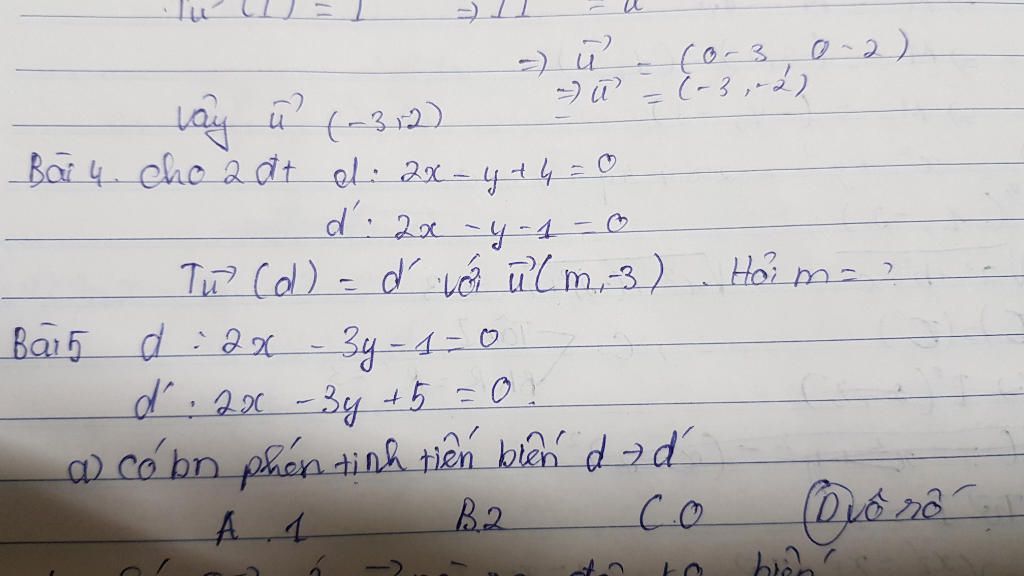 Tu⃗ (I) = I' => II' = u⃗
=> u⃗ = (0-3, 0-2)
=> u⃗ = (-3,-2)
Vậy u⃗ (-3,-2)
Bài 4. Cho 2 đt d: 2x - y + 4 = 0
d': 2x - y - 1 = 0
Tu⃗ (d) = d' với u⃗(m,-3). Hỏi m = ?
Bài 5 d: 2x - 3y - 1 = 0
d': 2x - 3y + 5 = 0.
a) Có bn phép tịnh tiến biến d → d'
A. 1 B. 2 C. 0 D. vô số
biến